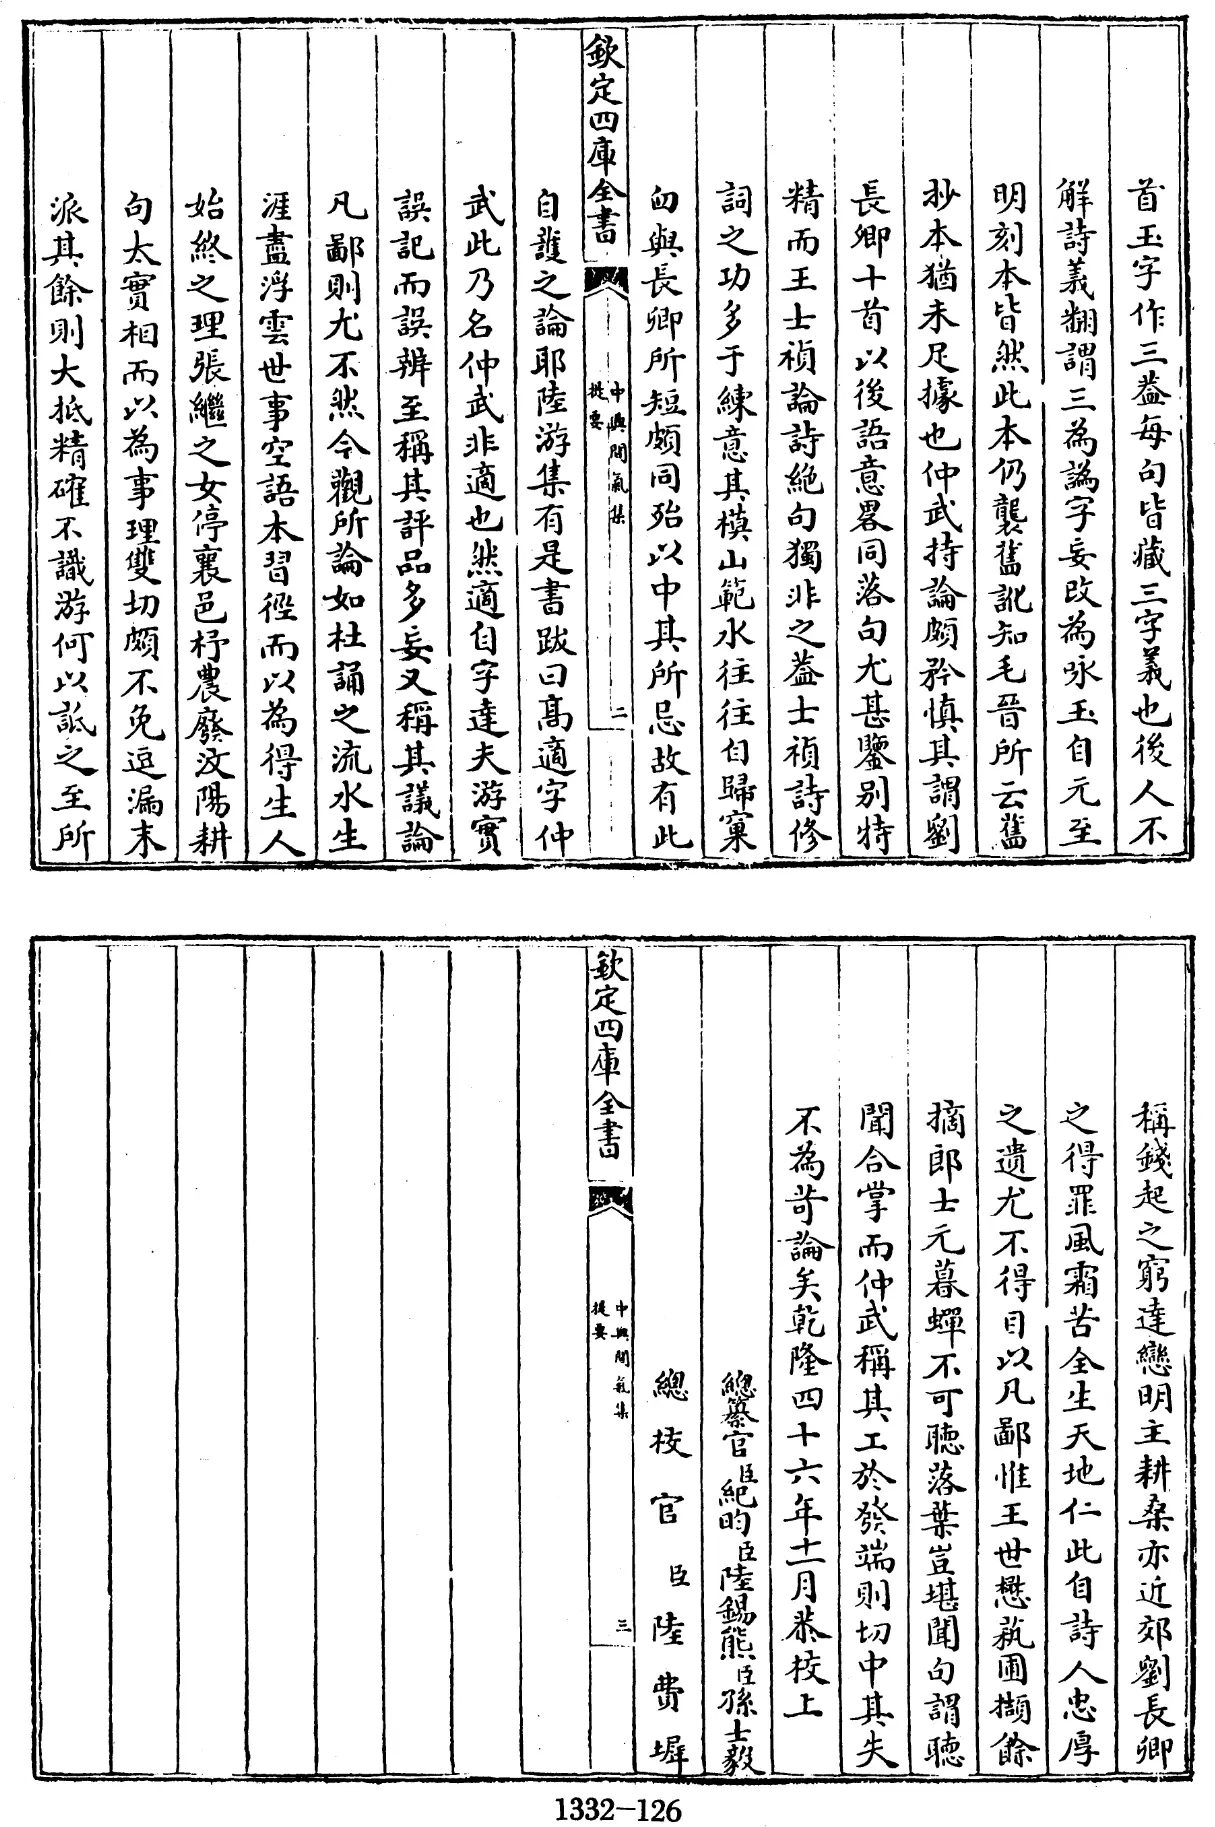 首玉字作三葢每句皆藏三字義也後人不
解詩義翻謂三為譌字妄改為咏玉自元至
明刻本皆然此本仍襲舊訛知毛晉所云舊
抄本猶未足據也仲武持論頗矜慎其謂劉
長卿十首以後語意畧同落句尤甚鑒别特
精而王士禎論詩絶句獨非之葢士禎詩修
詞之功多于練意其模山範水往往自歸窠
臼與長卿所短頗同殆以中其所忌故有此
欽定四庫全書
中興間氣集
提要
二
自護之論耶陸游集有是書跋曰高適字仲
武此乃名仲武非適也然適自字達夫游實
誤記而誤辨至稱其評品多妄又稱其議論
凡鄙則尤不然今觀所論如杜誦之流水生
涯盡浮雲世事空語本習徑而以為得生人
始終之理張繼之女停襄邑杼農廢汶陽耕
句太實相而以為事理雙切頗不免逗漏末
派其餘則大抵精確不識游何以詆之至所
稱錢起之窮達戀明主耕桑亦近郊劉長卿
之得罪風霜苦全生天地仁此自詩人忠厚
之遺尤不得目以凡鄙惟王世懋蓺圃擷餘
摘郎士元暮蟬不可聽落葉豈堪聞句謂聽
聞合掌而仲武稱其工於發端則切中其失
不為苛論矣乾隆四十六年十二月恭校上
總纂官臣紀昀臣陸錫熊臣孫士毅
總校官臣陸費墀
欽定四庫全書
中興間氣集
提要
三
1332-126